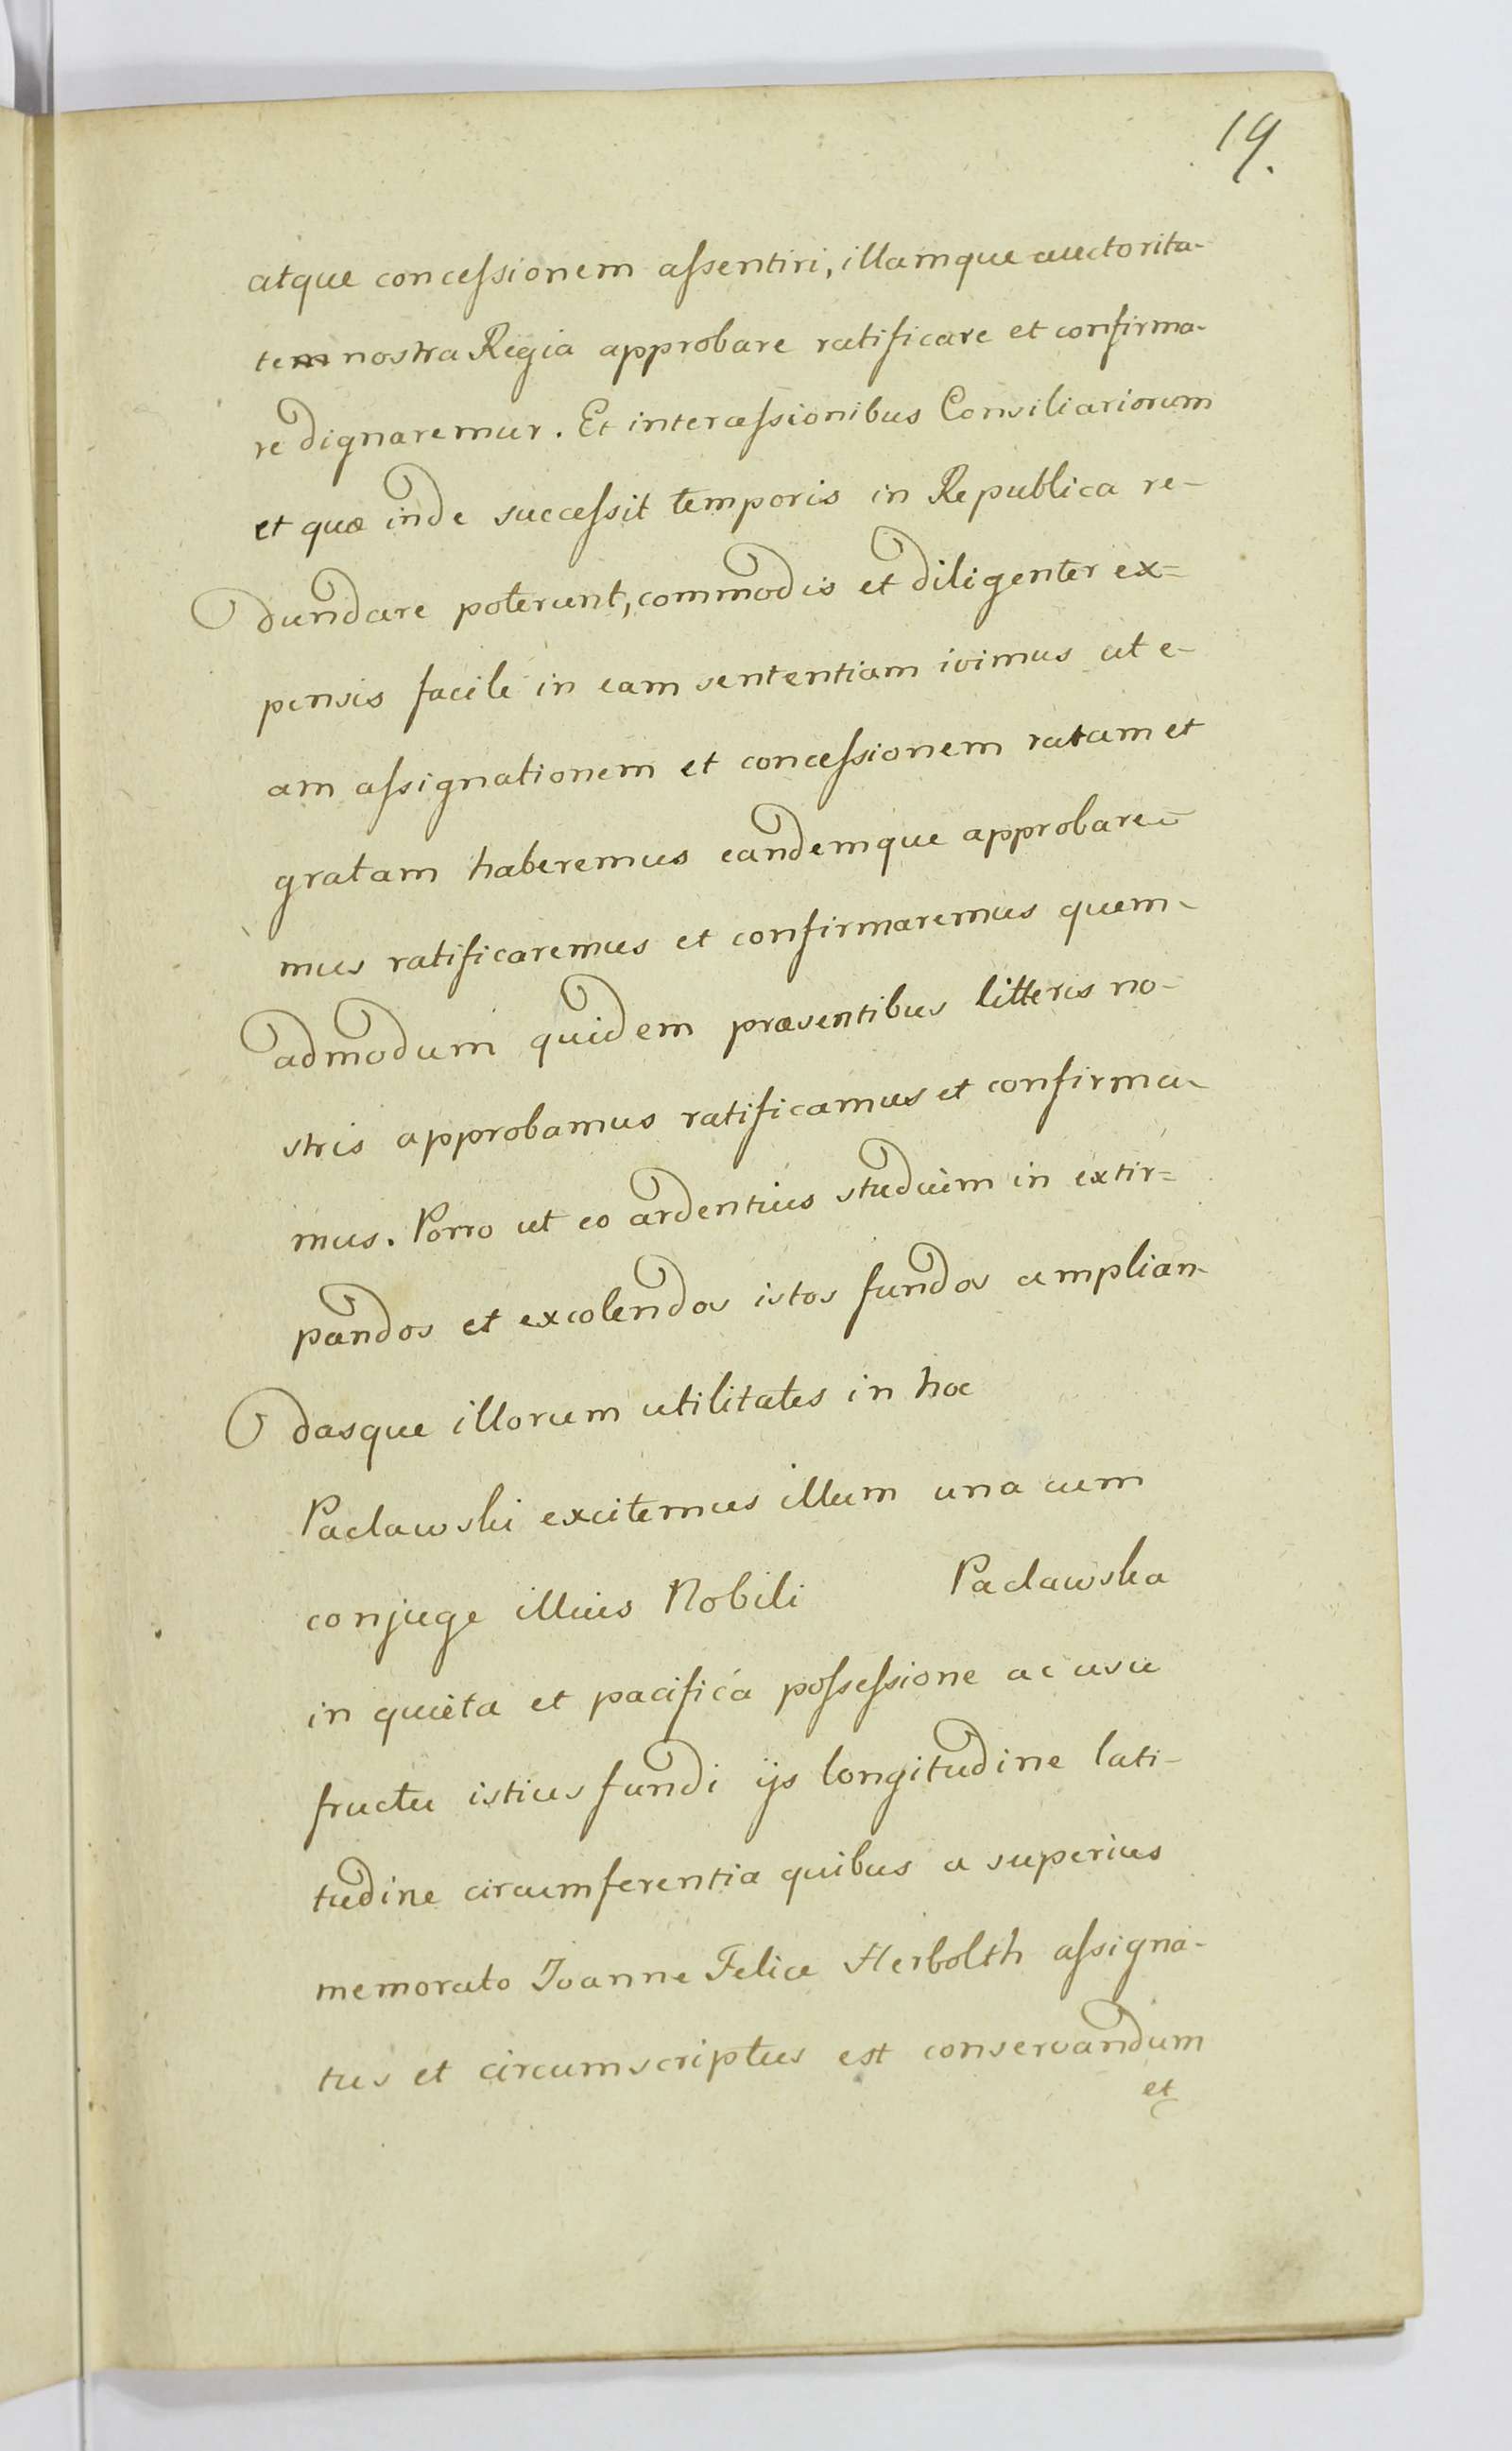 19.
atque concessionem assentiri, illamque auctorita-
tem nostra Regia approbare ratificare et confirma-
re dignaremur. Et intercessionibus Consiliariorum
et quæ inde successit temporis in Republica re-
dundare poterunt, commodis et diligenter ex=
pensis facile in eam sententiam ivimus ut e-
am assignationem et concessionem ratam et
gratam haberemus eandemque approbare=
mus ratificaremus et confirmaremus quem-
admodum quidem præsentibus litteris no-
stris approbamus ratificamus et confirma-
mus. Porro ut eo ardentius studium in extir=
pandos et excolendos istos fundos amplian-
dasque illorum utilitates in hoc
Paclawski excitemus illum una cum
conjuge illius Nobili Paclawska
in quieta et pacifica possessione ac usu
fructu istius fundi ijs longitudine lati-
tudine circumferentia quibus a superius
memorato Joanne Felice Herbolth assigna-
tus et circumscriptus est conservandum
et